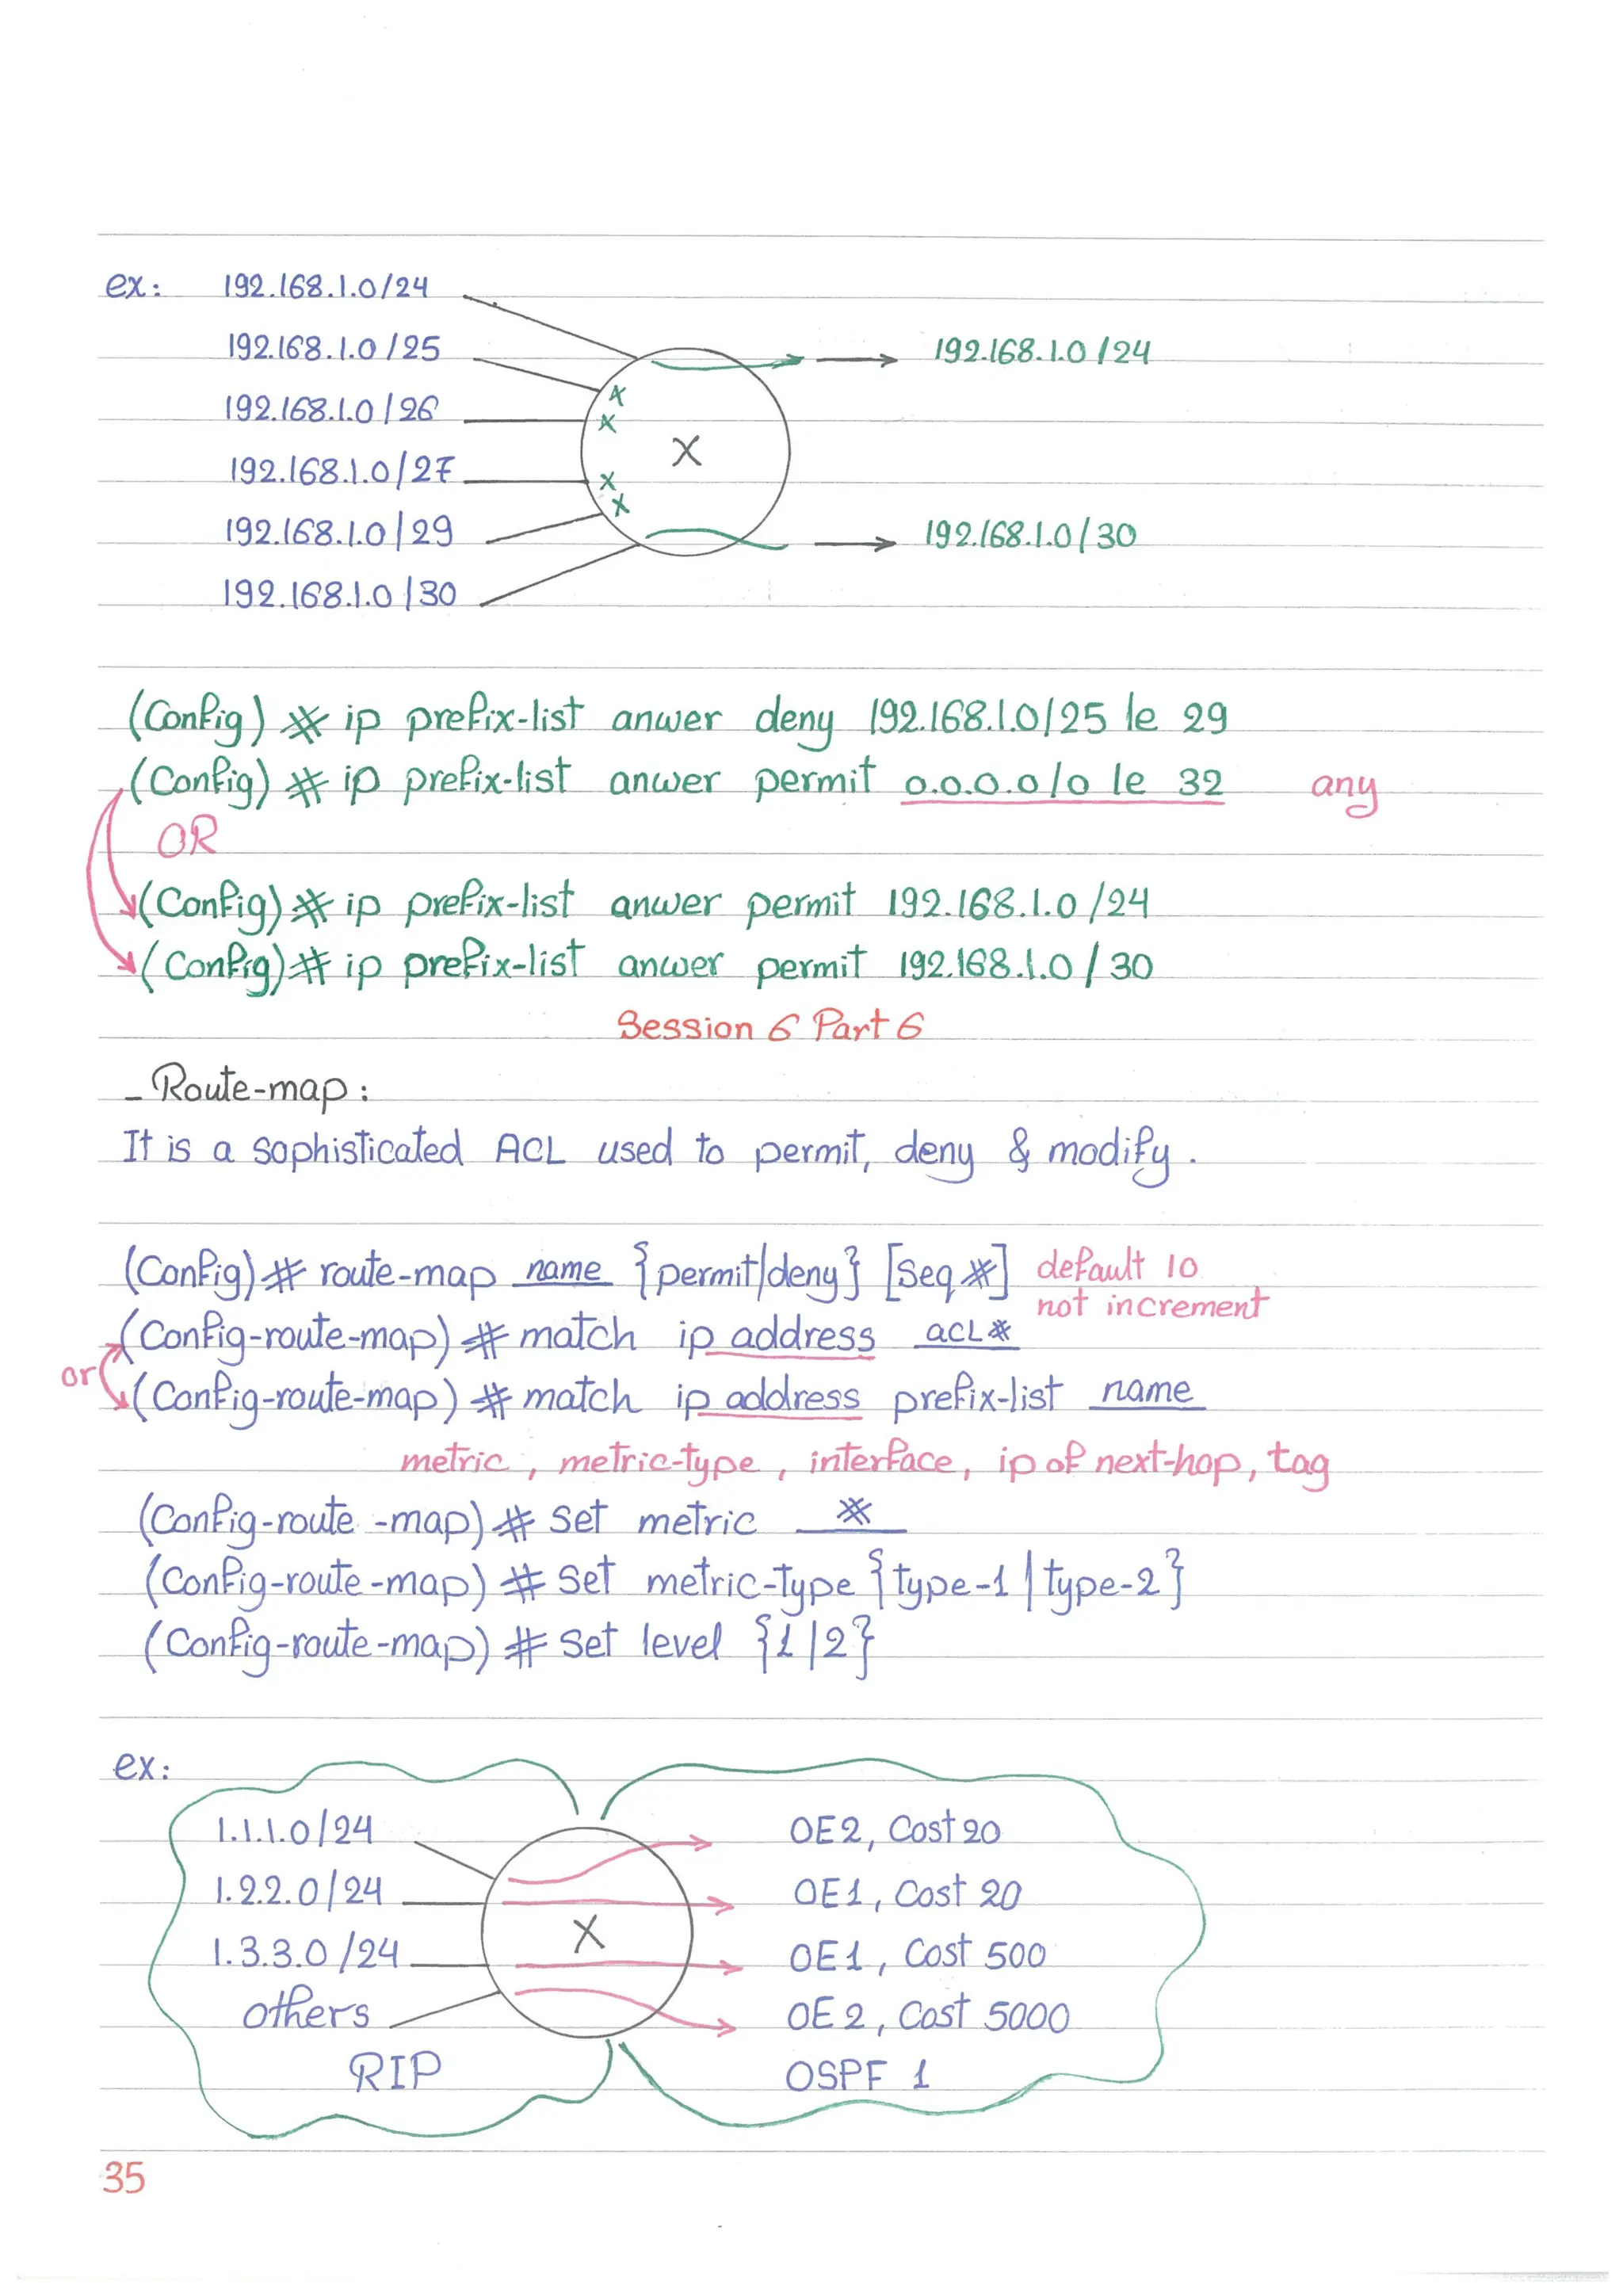 ex: 192.168.1.0/24
192.168.1.0/25
192.168.1.0/24
192.168.1.0/26
X
192.168.1.0/27
192.168.1.0/29
192.168.1.0/30
192.168.1.0/30
(Config)# ip prefix-list anwer deny 192.168.1.0/25 le 29
(Config)# ip prefix-list anwer permit 0.0.0.0/0 le 32 any
OR
(Config)# ip prefix-list anwer permit 192.168.1.0/24
(Config)# ip prefix-list anwer permit 192.168.1.0/30
Session 6 Part 6
- Route-map:
It is a sophisticated ACL used to permit, deny & modify.
(Config)# route-map name {permit/deny} [seq #] default 10
not increment
(Config-route-map)# match ip address ACL#
or
(Config-route-map)# match ip address prefix-list name
metric, metric-type, interface, ip of next-hop, tag
(Config-route-map)# set metric #
(Config-route-map)# set metric-type {type-1 | type-2}
(Config-route-map)# set level {1|2}
ex:
1.1.1.0/24 OE2, Cost 20
1.2.2.0/24 OE1, Cost 20
X
1.3.3.0/24 OE1, Cost 500
others OE2, Cost 5000
RIP OSPF 1
35